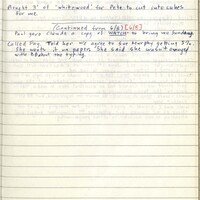 Bought 3' of "whitewood" for Pete to cut into cubes
for me.
[continued from 6/8] [6/9]
Paul gave Claudia a copy of to bring me Sunday.
Called Fay. Told her we agree to her getting 5%.
She wants it on paper. She said she wasn't
with